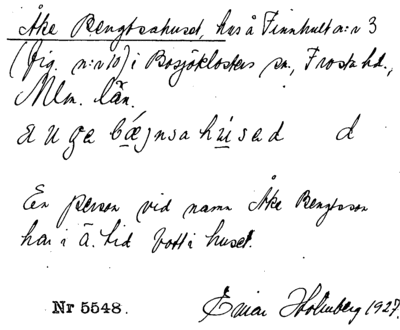 Åke Bengtsahuset, hus å Finnhult n:r 3
(fig. n:r 10) i Bosjöklosters sn., Frosta hd.,
Mlm. län.
En person vid namn Åke Bengtsson
har i ä. tid bott i huset.
Nr 5548. Einar Holmberg 1927.